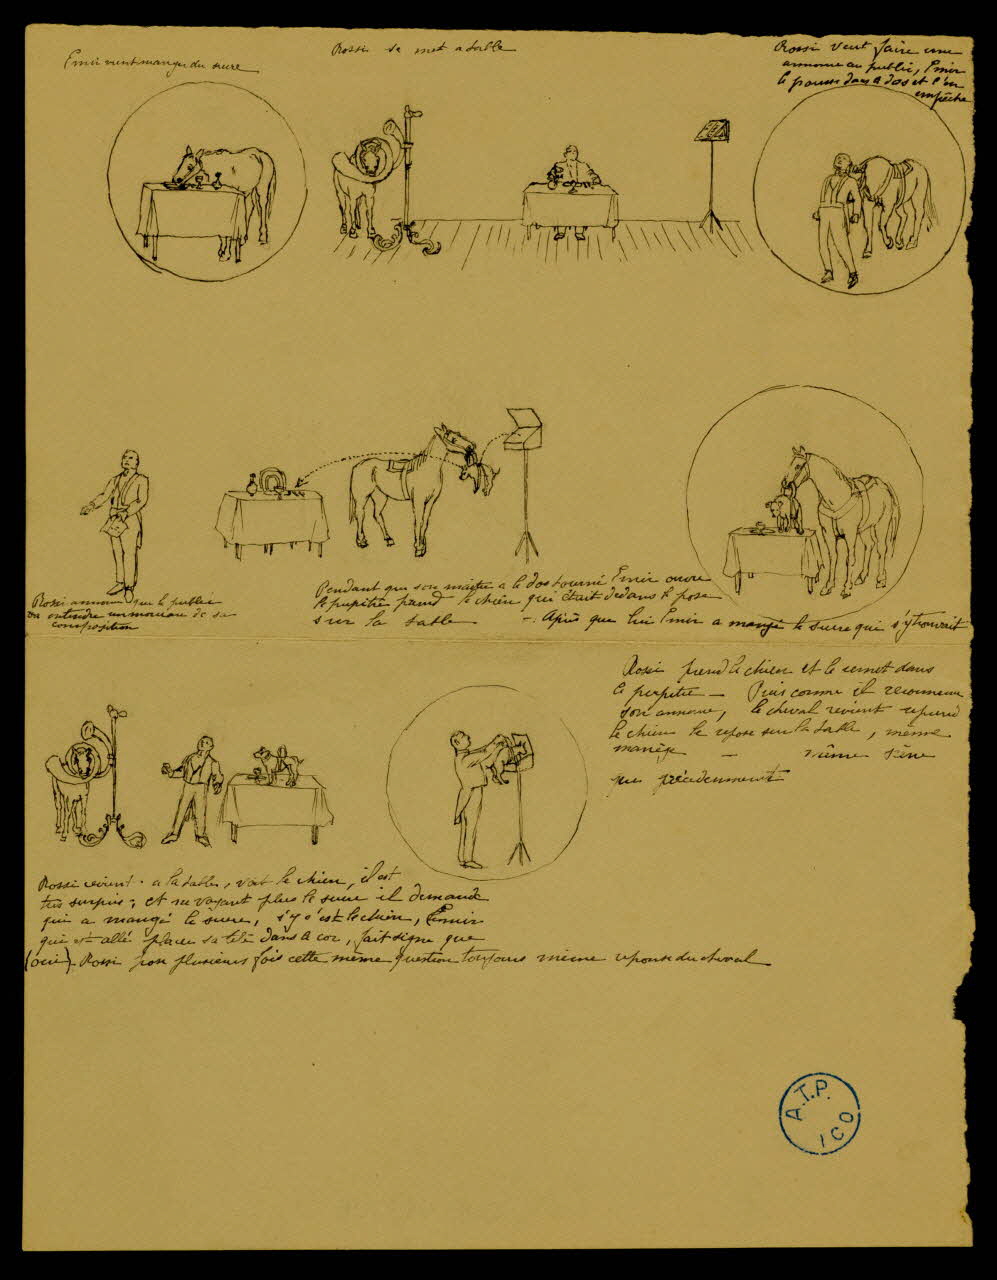 Emir vient manger du sucre
Rossi se met a table
Rossi veut faire une
annonce au public, Emir
le pousse dans le dos et l'en
empêche
Rossi annonce que le public
va entendre un morceau de sa
composition
Pendant que son maître a le dos tourné Emir ouvre
le pupitre prend le chien qui était dedans le pose
sur la table - Après que lui Emir a mangé le sucre qui s'y trouvait
Rossi prend le chien et le remet dans
le pupitre - Puis comme il recommence
son annonce, le cheval revient reprend
le chien le repose sur la table, même
manège - même scène
que précédemment
Rossi revient a la table, voit le chien, il est
très surpris; et ne voyant plus le sucre il demande
qui a mangé le sucre, si c'est le chien, Emir
qui est allé placer sa tête dans le cor, fait signe que
(oui). Rossi pose plusieurs fois cette même question toujours même réponse du cheval
A.T.P.
ICO